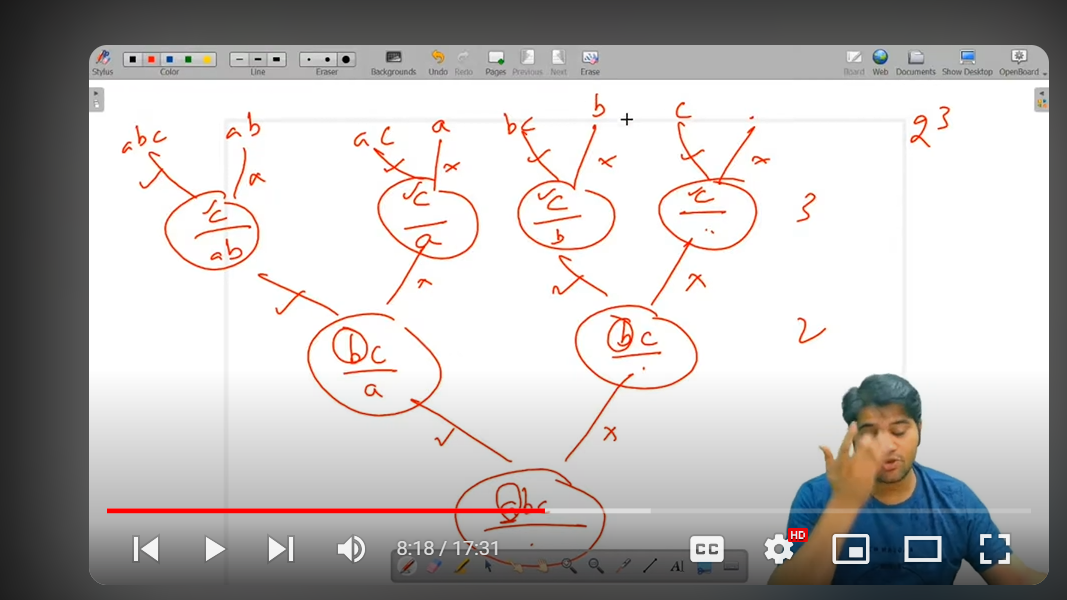 Stylus Color Line Eraser Backgrounds Undo Redo Pages Previous Next Erase Board Web Documents Show Desktop OpenBoard
abc ab ac a bc b c . 2³
✓ x ✓ x ✓ x ✓ x
c c c c 3
ab a b ..
✓ x ✓ x
bc bc 2
a .
✓ x
abc
.
8:18 / 17:31 CC HD